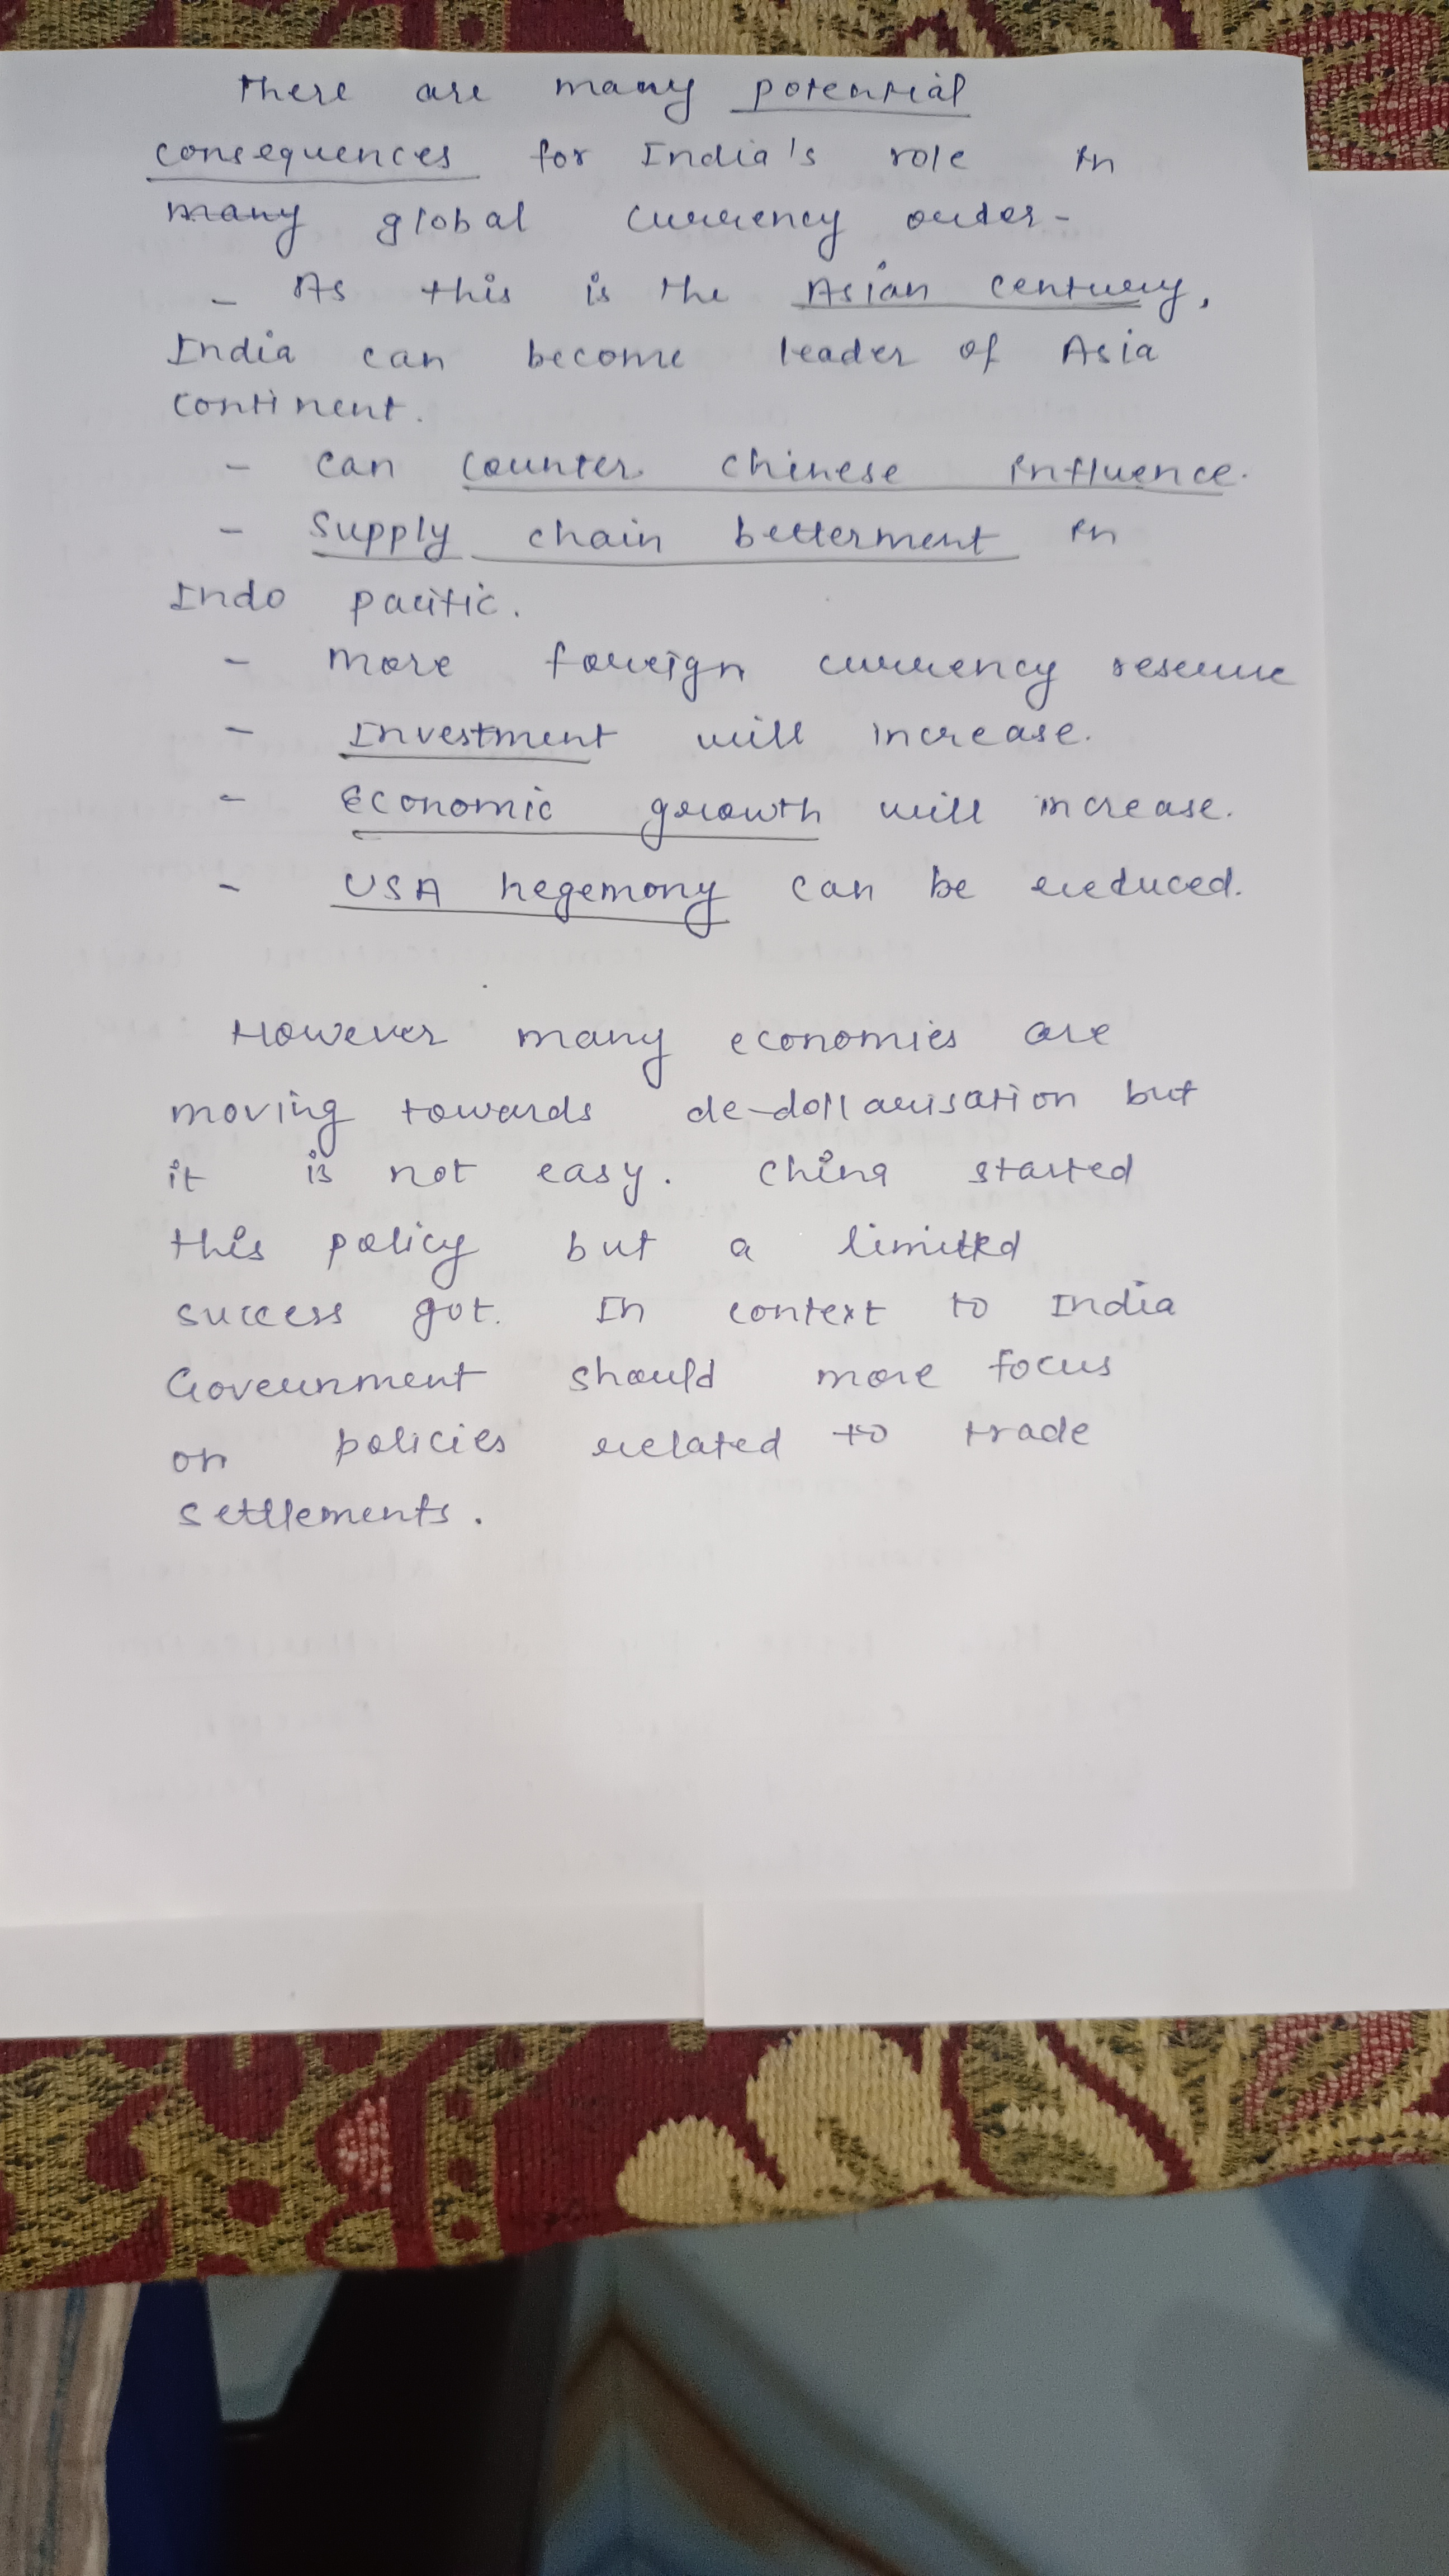 There are many potential
consequences for India's role in
many global currency order -
- As this is the Asian century,
India can become leader of Asia
continent.
- can counter chinese influence.
- Supply chain betterment in
Indo pacific.
- more foreign currency reserve
- Investment will increase.
- Economic growth will increase.
- USA hegemony can be reduced.
However many economies are
moving towards de-dollarisation but
it is not easy. China started
this policy but a limited
success got. In context to India
Government should more focus
on policies related to trade
settlements.